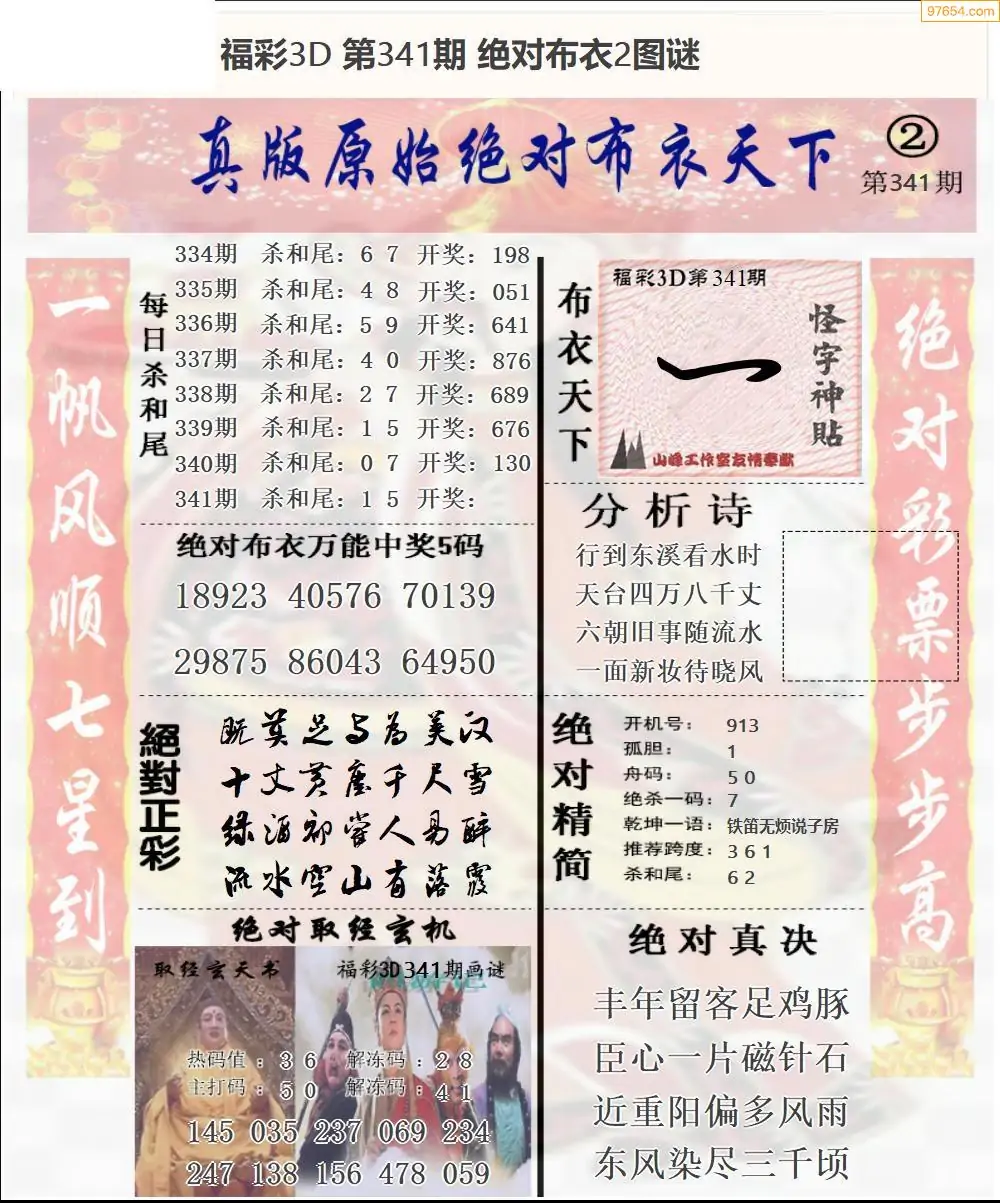 97654.com
福彩3D 第341期 绝对布衣2图谜
真版原始绝对布衣天下
②
第341期
一帆风顺七星到
每日杀和尾
334期 杀和尾：6 7 开奖：198
335期 杀和尾：4 8 开奖：051
336期 杀和尾：5 9 开奖：641
337期 杀和尾：4 0 开奖：876
338期 杀和尾：2 7 开奖：689
339期 杀和尾：1 5 开奖：676
340期 杀和尾：0 7 开奖：130
341期 杀和尾：1 5 开奖：
绝对布衣万能中奖5码
18923 40576 70139
29875 86043 64950
絕對正彩
既莫足与为美汉
十丈黄尘千尺雪
绿酒初尝人易醉
流水空山有落霞
绝对取经玄机
取经玄天书
福彩3D341期画谜
热码值：3 6 解冻码：2 8
主打码：5 0 解冻码：4 1
145 035 237 069 234
247 138 156 478 059
布衣天下
福彩3D第341期
一
怪字神贴
山峰工作室友情奉献
分析诗
行到东溪看水时
天台四万八千丈
六朝旧事随流水
一面新妆待晓风
绝对精简
开机号： 913
孤胆： 1
舟码： 5 0
绝杀一码：7
乾坤一语：铁笛无烦说子房
推荐跨度：3 6 1
杀和尾： 6 2
绝对真决
丰年留客足鸡豚
臣心一片磁针石
近重阳偏多风雨
东风染尽三千顷
绝对彩票步步高